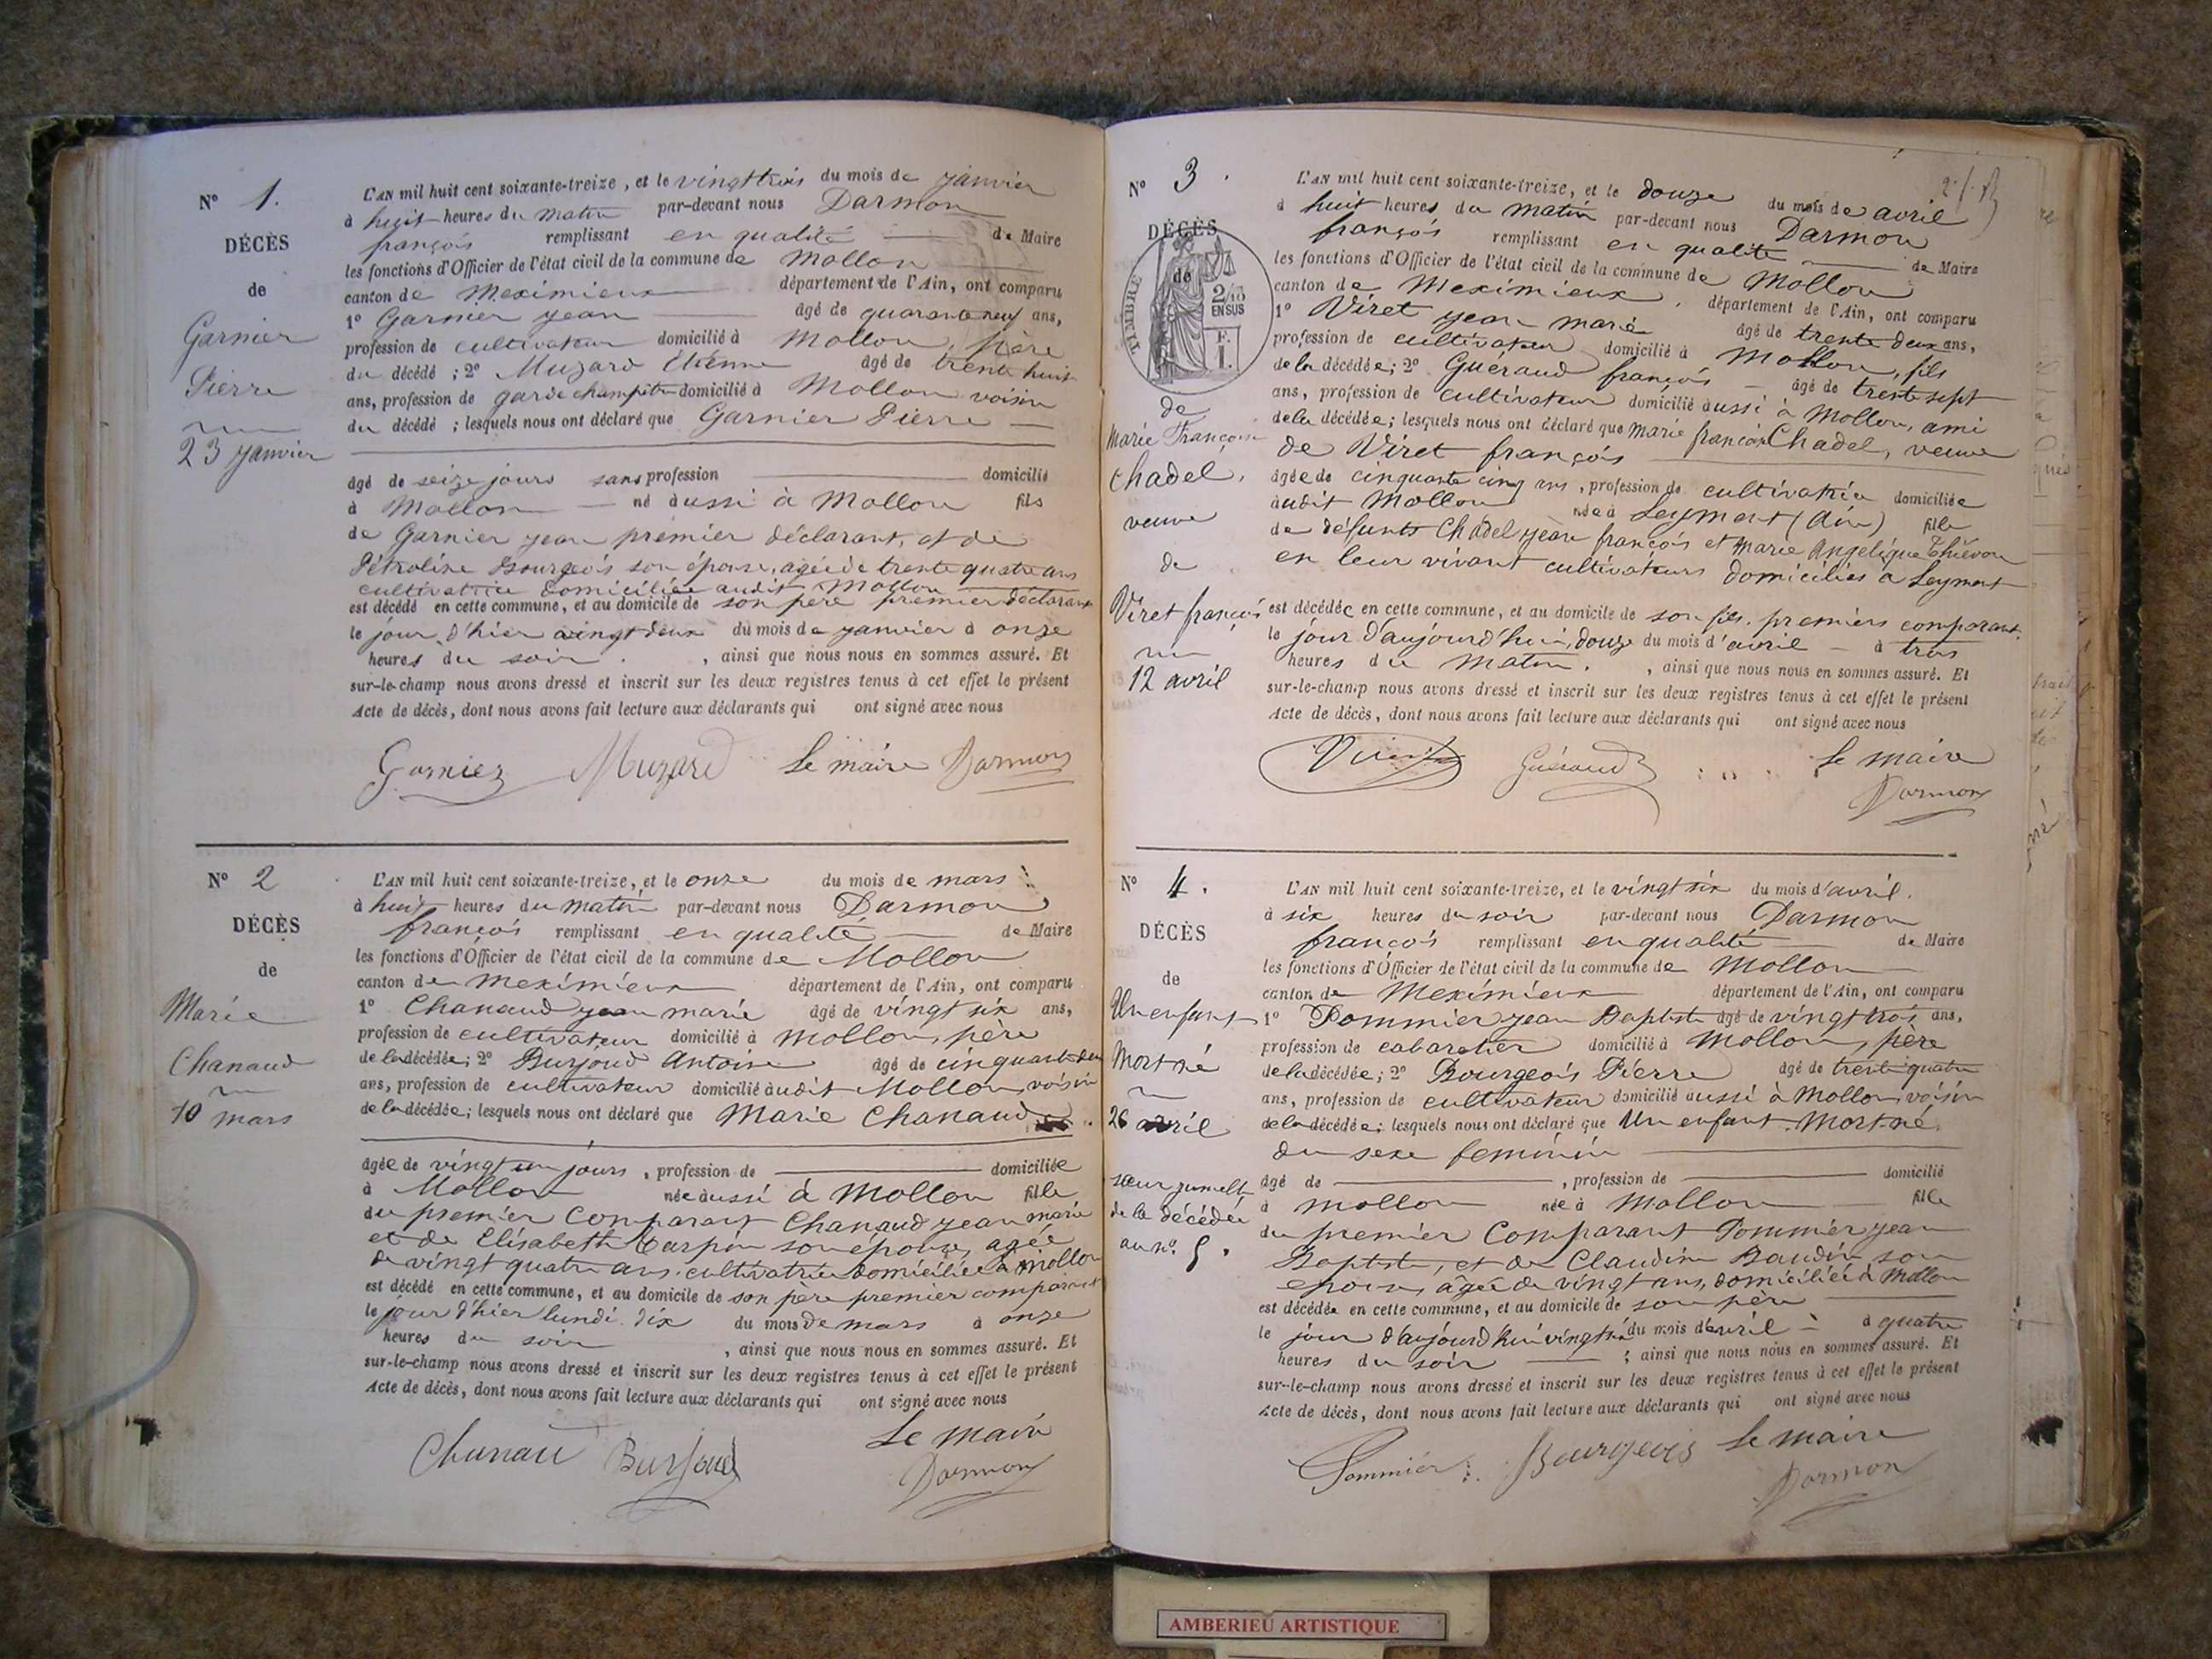 N° 1.
DÉCÈS
de
Garnier
Pierre
23 janvier
L'AN mil huit cent soixante-treize, et le vingt trois du mois de janvier
à huit heures du matin par-devant nous Darmon
françois remplissant en qualité de Maire
les fonctions d'Officier de l'état civil de la commune de Mollon
canton de Meximieux département de l'Ain, ont comparu
1° Garnier jean âgé de quarante neuf ans,
profession de cultivateur domicilié à Mollon, père
du décédé ; 2° Muzard Etienne âgé de trente huit
ans, profession de garde champêtre domicilié à Mollon voisin
du décédé ; lesquels nous ont déclaré que Garnier Pierre
âgé de seize jours sans profession domicilié
à Mollon né aussi à Mollon fils
de Garnier jean premier déclarant, et de
Pétroline Bourgeois son épouse, agée de trente quatre ans
cultivatrice domiciliée audit Mollon
est décédé en cette commune, et au domicile de son père premier déclarant
le jour d'hier vingt deux du mois de janvier à onze
heures du soir. , ainsi que nous nous en sommes assuré. Et
sur-le-champ nous avons dressé et inscrit sur les deux registres tenus à cet effet le présent
Acte de décès, dont nous avons fait lecture aux déclarants qui ont signé avec nous
Garnier Muzard Le maire Darmon
N° 2
DÉCÈS
de
Marie
Chanaud
10 mars
L'AN mil huit cent soixante-treize, et le onze du mois de mars
à huit heures du matin par-devant nous Darmon
françois remplissant en qualité de Maire
les fonctions d'Officier de l'état civil de la commune de Mollon
canton de Meximieux département de l'Ain, ont comparu
1° Chanaud jean marie âgé de vingt six ans,
profession de cultivateur domicilié à Mollon, père
de la décédée ; 2° Burjoud Antoine âgé de cinquante deux
ans, profession de cultivateur domicilié audit Mollon, voisin
de la décédée ; lesquels nous ont déclaré que Marie Chanaud
âgée de vingt un jours , profession de domiciliée
à Mollon née aussi à Mollon fille
du premier Comparant Chanaud jean marie
et de Elisabeth Carpin son épouse, agée
de vingt quatre ans, cultivatrice domiciliée à Mollon
est décédé en cette commune, et au domicile de son père premier comparant
le jour d'hier lundi dix du mois de mars à onze
heures du soir , ainsi que nous nous en sommes assuré. Et
sur-le-champ nous avons dressé et inscrit sur les deux registres tenus à cet effet le présent
Acte de décès, dont nous avons fait lecture aux déclarants qui ont signé avec nous
Le maire
Chanau Burjoud Darmon
N° 3.
DÉCÈS
de
TIMBRE
2/10
EN SUS
F.
1.
de
Marie Françoise
Chadel,
veuve
de
Viret françois
12 avril
L'AN mil huit cent soixante-treize, et le douze du mois de avril
à huit heures du matin par-devant nous Darmon
françois remplissant en qualité de Maire
les fonctions d'Officier de l'état civil de la commune de Mollon
canton de Meximieux. département de l'Ain, ont comparu
1° Viret jean marie âgé de trente deux ans,
profession de cultivateur domicilié à Mollon, fils
de la décédée ; 2° Guéraud françois âgé de trente sept
ans, profession de cultivateur domicilié aussi à Mollon, ami
de la décédée ; lesquels nous ont déclaré que marie françoise Chadel, veuve
de Viret françois
âgée de cinquante cinq ans , profession de cultivatrice domiciliée
audit Mollon née à Leyment (Ain) fille
de défunts Chadel jean françois et Marie Angelique Thiévon
en leur vivant cultivateurs domiciliés à Leyment
est décédée en cette commune, et au domicile de son fils, premiers comparant.
le jour d'aujourd'hui, douze du mois d'avril à trois
heures du matin. , ainsi que nous nous en sommes assuré. Et
sur-le-champ nous avons dressé et inscrit sur les deux registres tenus à cet effet le présent
Acte de décès, dont nous avons fait lecture aux déclarants qui ont signé avec nous
Viret Guéraud Le maire
Darmon
N° 4.
DÉCÈS
de
Un enfant
Mort né
26 avril
sœur jumelle
de la décédée
au n° 5.
L'AN mil huit cent soixante-treize, et le vingt six du mois d'avril.
à six heures du soir par-devant nous Darmon
françois remplissant en qualité de Maire
les fonctions d'Officier de l'état civil de la commune de Mollon
canton de Meximieux département de l'Ain, ont comparu
1° Pommier jean Baptiste âgé de vingt trois ans,
profession de cabaretier domicilié à Mollon, père
de la décédée ; 2° Bourgeois Pierre âgé de trente quatre
ans, profession de cultivateur domicilié aussi à Mollon, voisin
de la décédée ; lesquels nous ont déclaré que Un enfant Mort né
du sexe feminin
âgé de , profession de domicilié
à mollon née à Mollon fille
du premier Comparant Pommier jean
Baptiste, et de Claudine Baudin son
epouse, âgée de vingt ans, domiciliée à Mollon
est décédée en cette commune, et au domicile de son père
le jour d'aujourd'hui vingt six du mois d'avril à quatre
heures du soir ; ainsi que nous nous en sommes assuré. Et
sur-le-champ nous avons dressé et inscrit sur les deux registres tenus à cet effet le présent
Acte de décès, dont nous avons fait lecture aux déclarants qui ont signé avec nous
Pommier Bourgeois Le maire
Darmon
AMBERIEU ARTISTIQUE